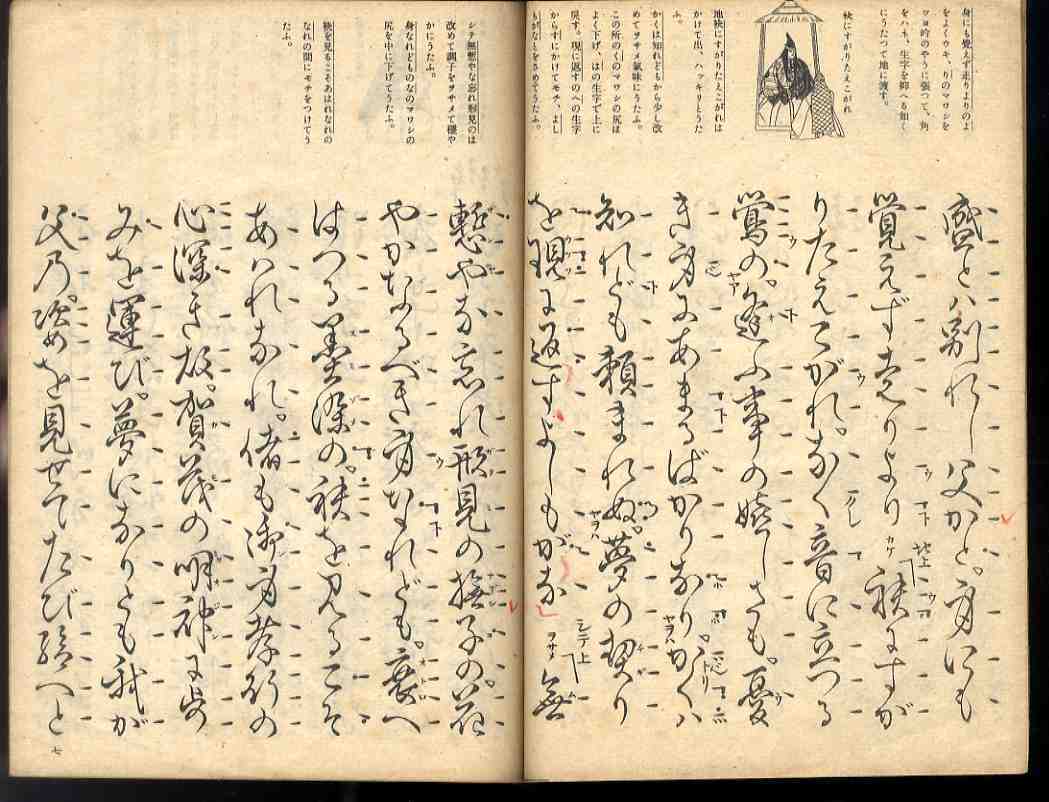 身にも覺えず走りよりのよ
をよくウキ、りのマワシを
ワヨ吟のやうに張つて、角
をハネ、生字を抑へる如く
にうたつて地に渡す。
袂にすがりたえこがれ
地袂にすがりたえこがれは
かけて出、ハッキリとうた
ふ。
かくは知れどもから少し改
めてヲサメ氣味にうたふ。
この所のくのマワシの尻は
よく下げ、はの生字で上に
戻す。現に返すのへの生字
からすにかけてモチ、よし
もがなとをさめてうたふ。
盛とハ別れし父かと。身にも
覚えず走りより 袂にすが
りたえこがれ。なく音に立つる
鶯の。逢ふ事の嬉しさも。憂
き身にあまるばかりなり。かくハ
知れども頼まれぬ。夢の契り
を現に返すよしもがな 無
シテ無慙やな忘れ形見のは
改めて調子をヲサメて穩や
かにうたふ。
身なれどものなのマワシの
尻を中に下げてうたふ。
袂を見るこそあはれなれの
なれの間にモチをつけてう
たふ。
慙やな忘れ形見の撫子の。花
やかなるべき身なれども。衰へ
はつる墨染の。袂を見るこそ
あハれなれ。偖も御身孝行の
心深き故。賀茂の明神に歩
みを運び。夢になりとも我が
父乃。姿を見せてたび給へと
七